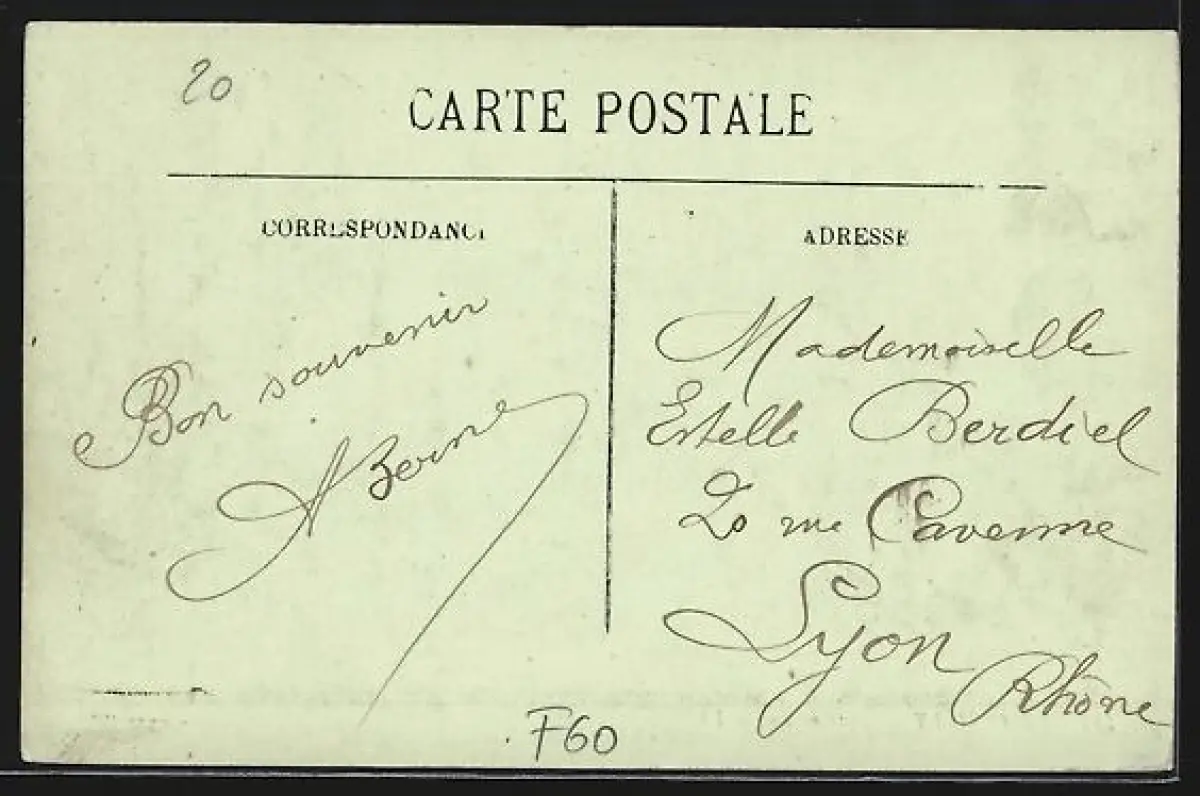 20
CARTE POSTALE
CORRESPONDANCE
ADRESSE
Bon souvenir
Mademoiselle
Estelle Berdiel
20 rue Cavenne
Lyon
Rhône
F60